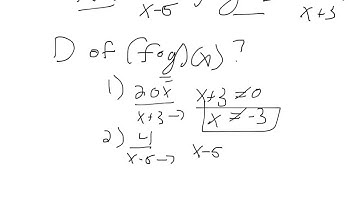 x-5 x+3
D of (fog)(x)?
1) 20x x+3≠0
x+3→ x≠-3
2) 4
x-5→ x-5